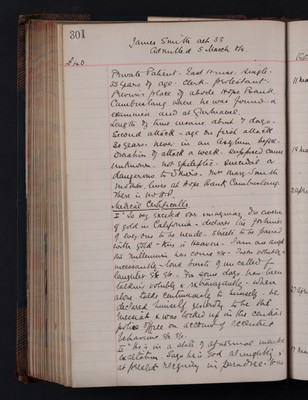 301
James Smith aet 35
Admitted 5 March
Private Patient. East House. Single.
35 years of age. Clerk. Protestant.
Previous place of abode Hope Bank
Cambuslang where he was found &
examined and at Gartnavel.
Length of time insane about 7 days.
Second attack - age on first attack
30 years. Never in an Asylum before.
Duration of attack a week. Supposed cause
unknown. Not epileptic. Suicidal or
dangerous to others. Mrs Mary Smith
mother, lives at Hope Bank Cambuslang.
There is no
Medical Certificates
I "Is very excited over imaginary
of gold in California - declares the fortunes
of every one to be made. Streets to be paved
with gold - this is Heaven. I am an angel
the millennium has come &c. Talks volubly &
incessantly - loud bursts of uncalled for
laughter &c &c. For some days has been
talking volubly & extravagantly - when
alone talks continuously to himself. he
declared himself yesterday to be the
Messiah & was locked up in the central
police office on account of eccentric
behaviour &c &c.
II "He is in a state of abnormal
excitation. Says he is God almighty &
at present reigning in paradise.